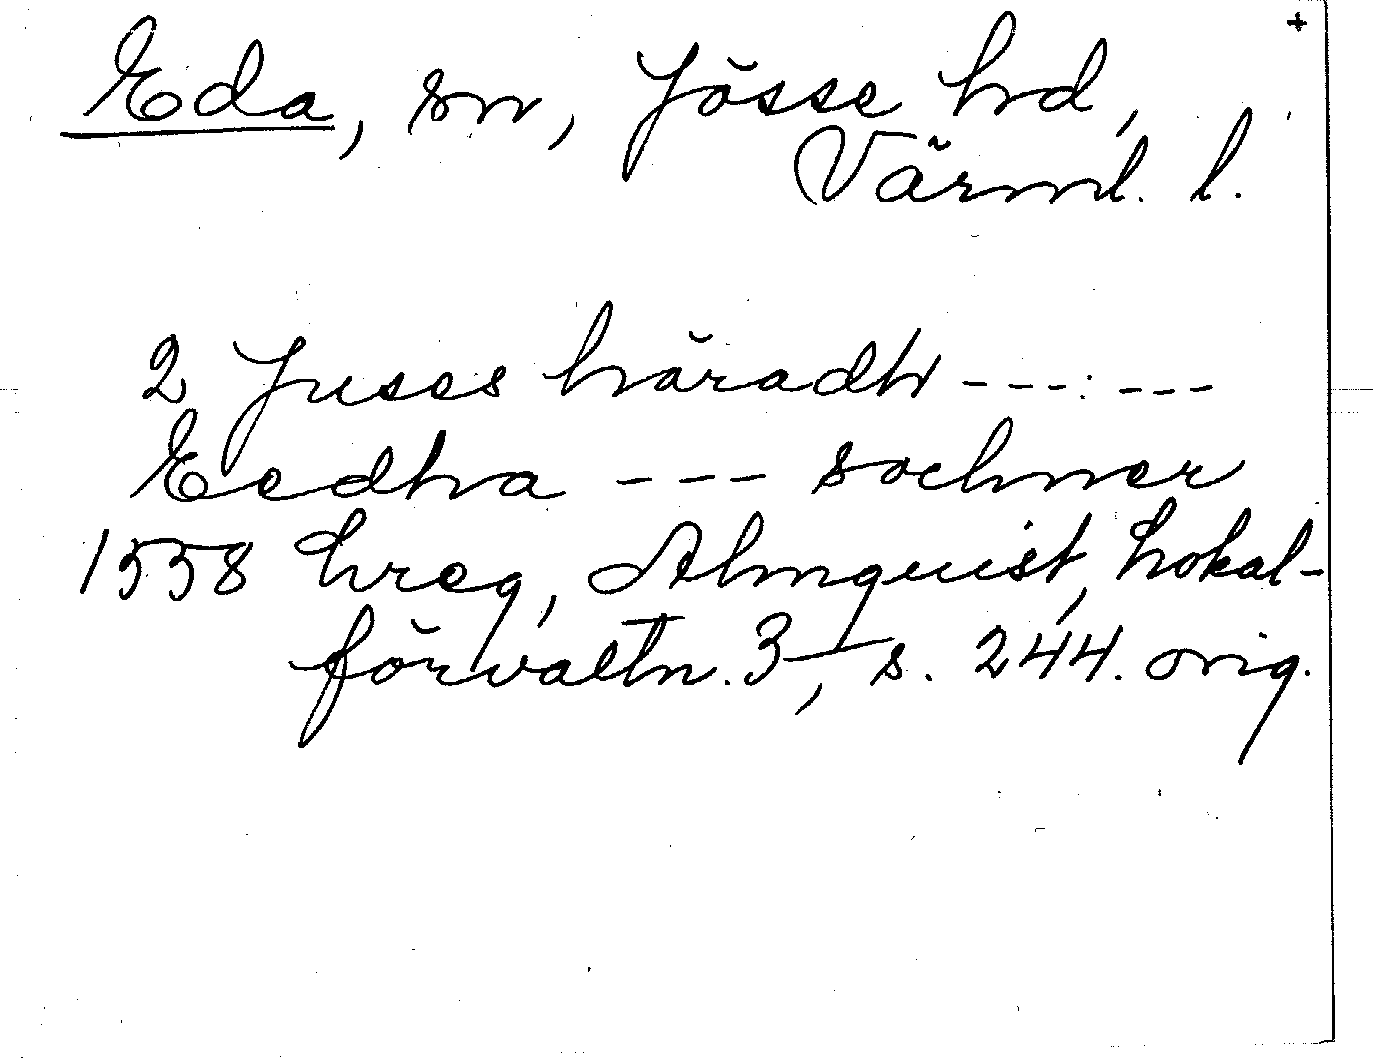 +
Eda, sn, Jösse hd,
Värml. l.
2 Juses häradh ---:---
Eedha --- sochner
1558 hreg, Almquist, Lokal-
förvaltn. 3, s. 244. orig.